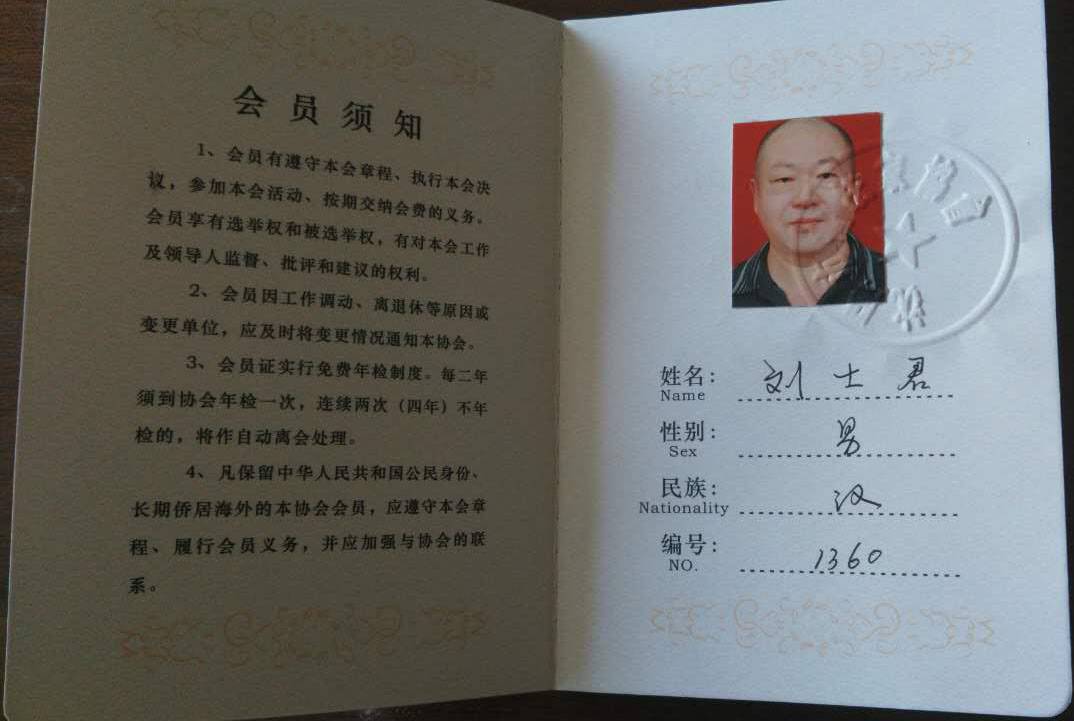 会员须知
1、会员有遵守本会章程、执行本会决
议，参加本会活动、按期交纳会费的义务。
会员享有选举权和被选举权，有对本会工作
及领导人监督、批评和建议的权利。
2、会员因工作调动、离退休等原因或
变更单位，应及时将变更情况通知本协会。
3、会员证实行免费年检制度。每二年
须到协会年检一次，连续两次（四年）不年
检的，将作自动离会处理。
4、凡保留中华人民共和国公民身份、
长期侨居海外的本协会会员，应遵守本会章
程、履行会员义务，并应加强与协会的联
系。
姓名：刘士君
Name
性别：男
Sex
民族：汉
Nationality
编号：1360
NO.